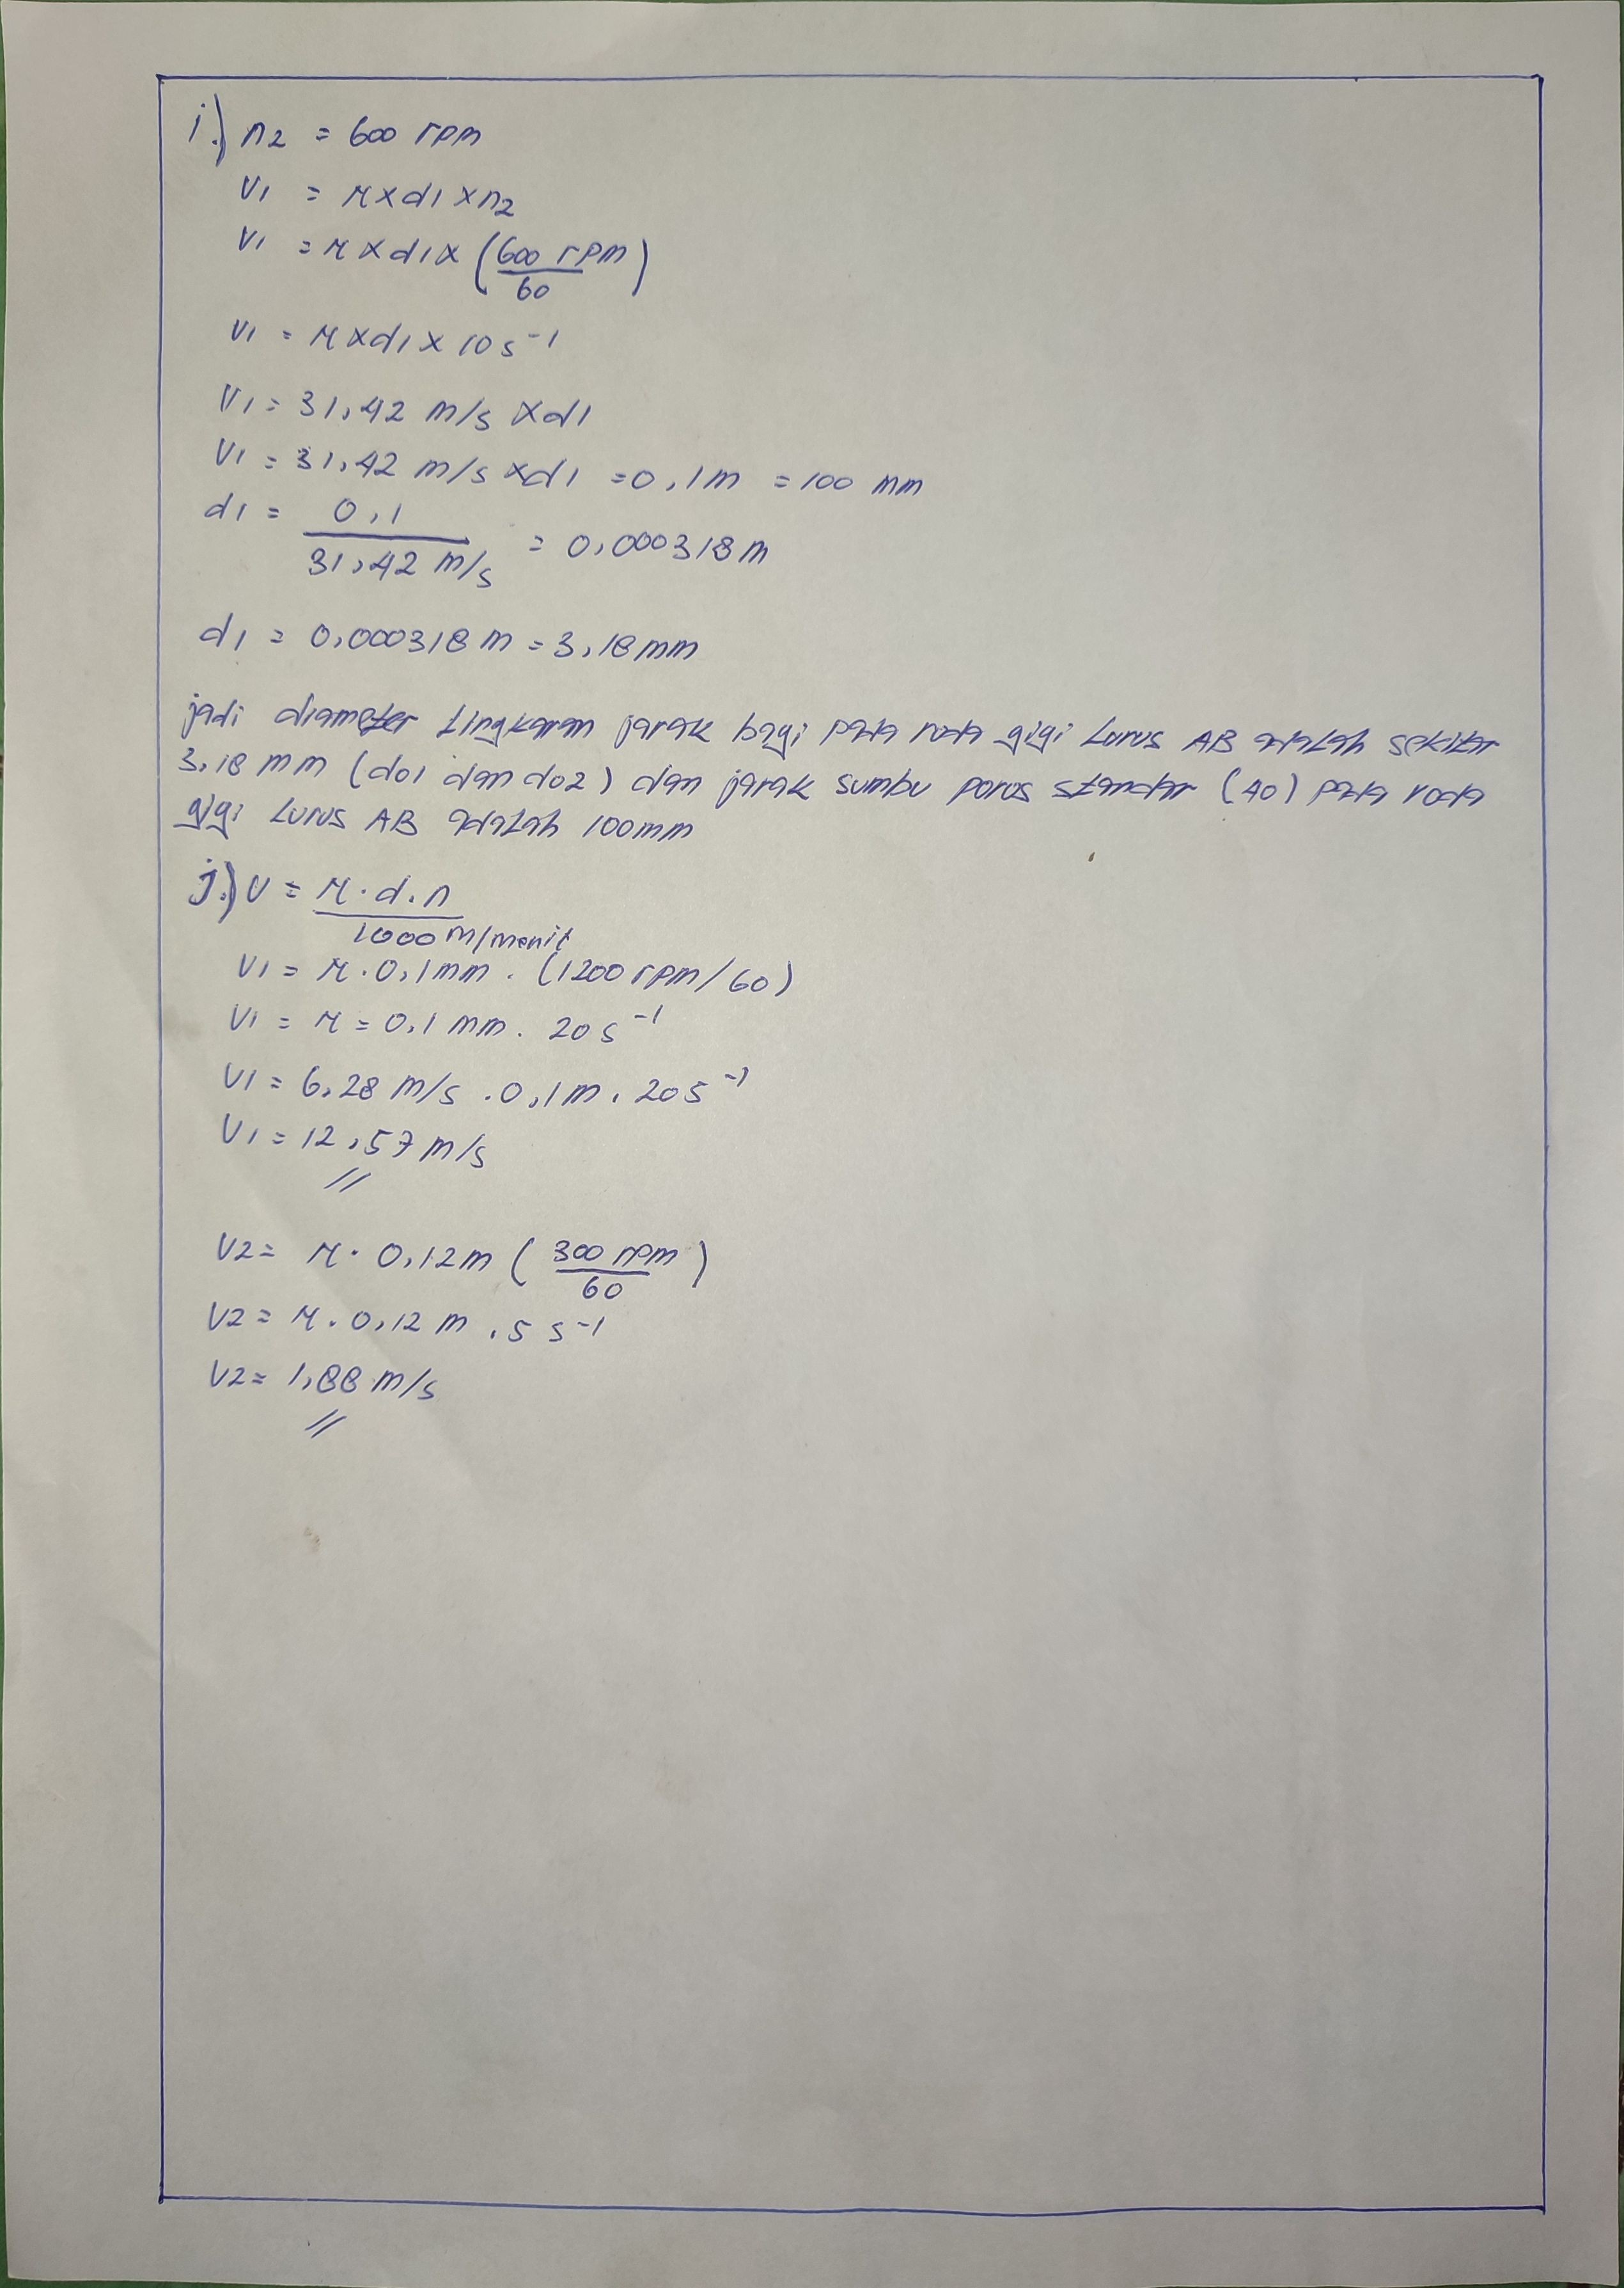 i.) n2 = 600 rpm
V1 = π x d1 x n2
V1 = π x d1 x (600 rpm / 60)
V1 = π x d1 x 10 s⁻¹
V1 = 31,42 m/s x d1
V1 = 31,42 m/s x d1 = 0,1 m = 100 mm
d1 = 0,1 / 31,42 m/s = 0,000318 m
d1 = 0,000318 m = 3,18 mm
jadi diameter Lingkaran jarak bagi pada roda gigi Lurus AB adalah sekitar
3,18 mm (do1 dan do2) dan jarak sumbu poros standar (A0) pada roda
gigi Lurus AB adalah 100 mm
j.) V = π . d . n / 1000 m/menit
V1 = π . 0,1 mm . (1200 rpm / 60)
V1 = π = 0,1 mm . 20 s⁻¹
V1 = 6,28 m/s . 0,1 m . 20 s⁻¹
V1 = 12,57 m/s
V2 = π . 0,12 m (300 rpm / 60)
V2 = π . 0,12 m . 5 s⁻¹
V2 = 1,88 m/s